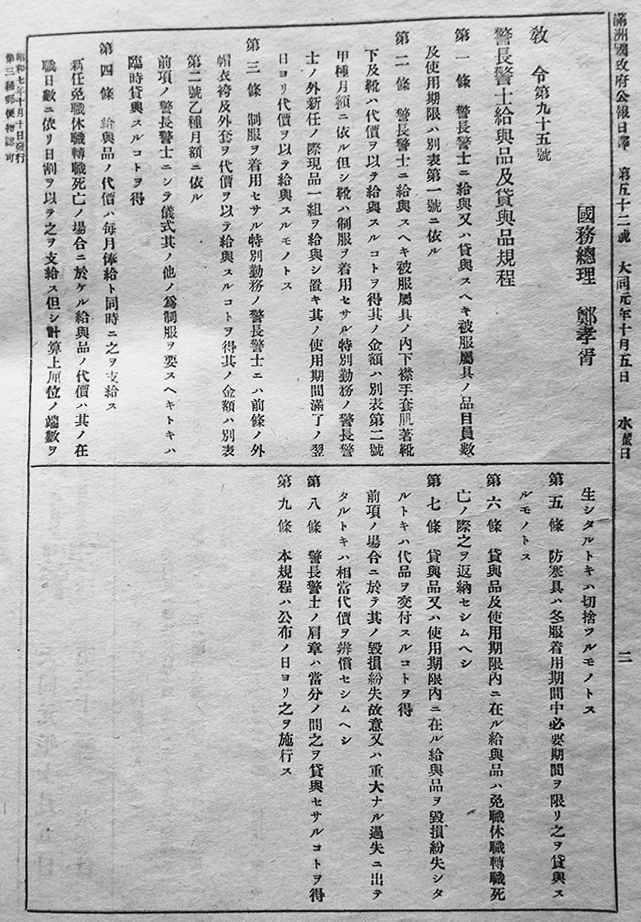 滿洲國政府公報日譯　第五十二號　大同元年十月五日　水曜日
二
國務總理　鄭孝胥
敎　令第九十五號
警長警士給與品及貸與品規程
第一條　警長警士ニ給與又ハ貸與スヘキ被服屬具ノ品目員數
及使用期限ハ別表第一號ニ依ル
第二條　警長警士ニ給與スヘキ被服屬具ノ內下襟手套肌著靴
下及靴ハ代價ヲ以テ給與スルコトヲ得其ノ金額ハ別表第二號
甲種月額ニ依ル但シ靴ハ制服ヲ着用セサル特別勤務ノ警長警
士ノ外新任ノ際現品一組ヲ給與シ置キ其ノ使用期間滿了ノ翌
日ヨリ代價ヲ以テ給與スルモノトス
第三條　制服ヲ着用セサル特別勤務ノ警長警士ニハ前條ノ外
帽衣袴及外套ヲ代價ヲ以テ給與スルコトヲ得其ノ金額ハ別表
第二號乙種月額ニ依ル
前項ノ警長警士ニシテ儀式其ノ他ノ爲制服ヲ要スヘキトキハ
臨時貸與スルコトヲ得
第四條　給與品ノ代價ハ每月俸給ト同時ニ之ヲ支給ス
新任免職休職轉職死亡ノ場合ニ於ケル給與品ノ代價ハ其ノ在
職日數ニ依リ日割ヲ以テ之ヲ支給ス但シ計算上厘位ノ端數ヲ
生シタルトキハ切捨ツルモノトス
第五條　防寒具ハ冬服着用期間中必要期間ヲ限リ之ヲ貸與ス
ルモノトス
第六條　貸與品及使用期限內ニ在ル給與品ハ免職休職轉職死
亡ノ際之ヲ返納セシムヘシ
第七條　貸與品又ハ使用期限內ニ在ル給與品ヲ毀損紛失シタ
ルトキハ代品ヲ交付スルコトヲ得
前項ノ場合ニ於テ其ノ毀損紛失故意又ハ重大ナル過失ニ出テ
タルトキハ相當代價ヲ辨償セシムヘシ
第八條　警長警士ノ肩章ハ當分ノ間之ヲ貸與セサルコトヲ得
第九條　本規程ハ公布ノ日ヨリ之ヲ施行ス
昭和七年十月十日發行
第三種郵便物認可